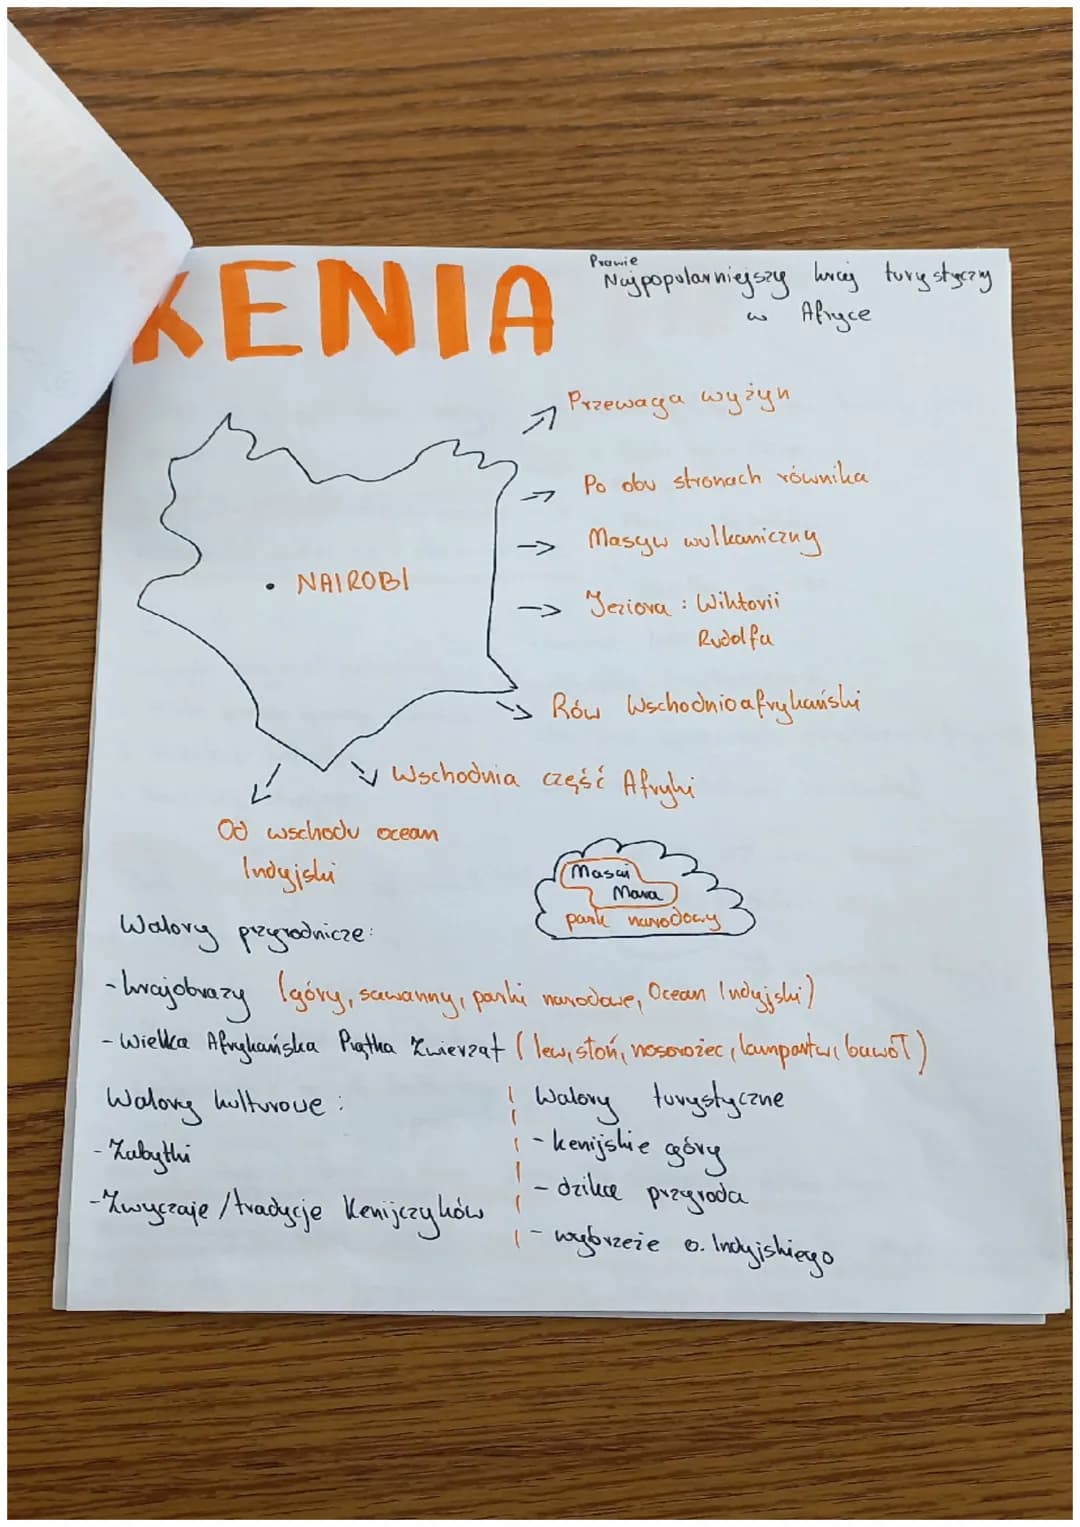 KENIA
Prawie
Najpopularniejszy kraj turystyczny
w Afryce
Przewaga wyżyn
Po obu stronach równika
Masyw wulkaniczny
• NAIROBI
Jeziora : Wiktorii
Rudolfa
Rów Wschodnioafrykański
Wschodnia część Afryki
Od wschodu ocean
Indyjski
Masai
Mara
park narodowy
Walory przyrodnicze:
- krajobrazy (góry, sawanny, parki narodowe, Ocean Indyjski)
- Wielka Afrykańska Piątka Zwierząt (lew, słoń, nosorożec, lampartw, bawół)
Walory kulturowe :
- Zabytki
- Zwyczaje / tradycje Kenijczyków
Walory turystyczne
- kenijskie góry
- dzika przyroda
- wybrzeże o. Indyjskiego